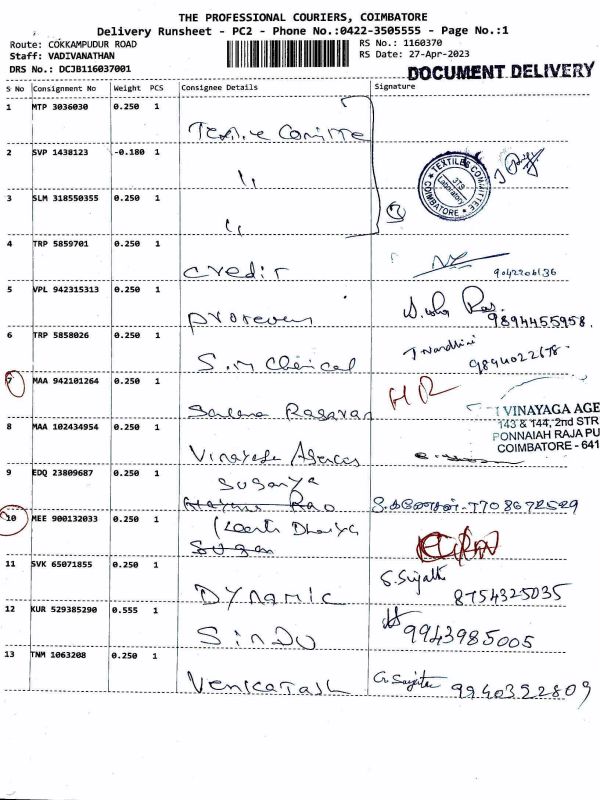 THE PROFESSIONAL COURIERS, COIMBATORE
Delivery Runsheet - PC2 - Phone No.:0422-3505555 - Page No.:1
Route: COKKAMPUDUR ROAD
RS No.: 1160370
Staff: VADIVANATHAN
RS Date: 27-Apr-2023
DRS No.: DCJB116037001
DOCUMENT DELIVERY
S No Consignment No Weight PCS Consignee Details Signature
1 MTP 3036030 0.250 1
2 SVP 1438123 -0.180 1
TEXTILES COMMITTEE
Laboratory
COIMBATORE
3 SLM 318550355 0.250 1
4 TRP 5859701 0.250 1
credit 9042206136
5 VPL 942315313 0.250 1
9894455958.
6 TRP 5858026 0.250 1
S.M Chemical 9894022678
7 MAA 942101264 0.250 1
HR
8 MAA 102434954 0.250 1
VINAYAGA AGE
143 & 144, 2nd STR
PONNAIAH RAJA PU
COIMBATORE - 641
9 EDQ 23809687 0.250 1
Suganya
10 MEE 900132033 0.250 1
11 SVK 65071855 0.250 1
DYNAMIC 8754325035
12 KUR 529385290 0.555 1
SINDU 9943985005
13 TNM 1063208 0.250 1
Venkatash 9940392809